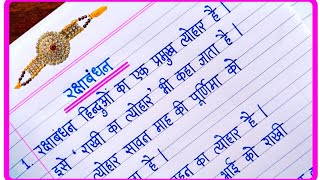 रक्षाबंधन
1. रक्षाबंधन हिन्दुओं का एक प्रमुख त्योहार है ।
इसे 'राखी का त्योहार' भी कहा जाता है ।
त्योहार सावन माह की पूर्णिमा को
जाता है ।
का त्योहार है ।
भाई को राखी